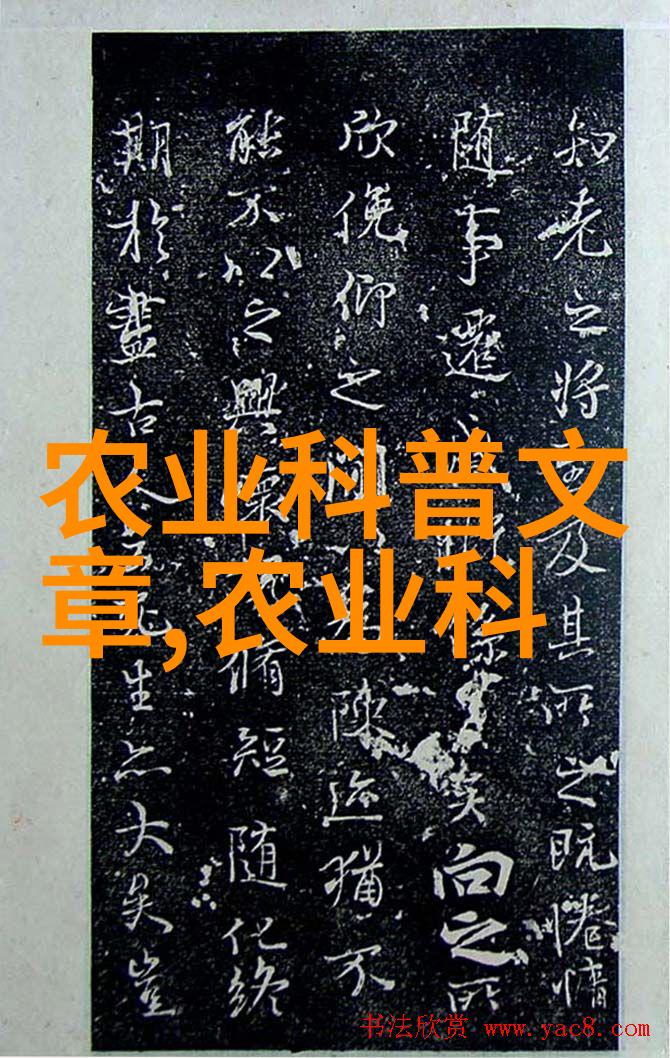 知老之將及其所之既惓情
随事遷矣向之所
欣俛仰之間陳迹猶不
能不以之興懷脩短随化終
期於盡古人死生亦大矣豈
农业科普文
章,农业科
书法欣赏 www.yac8.com